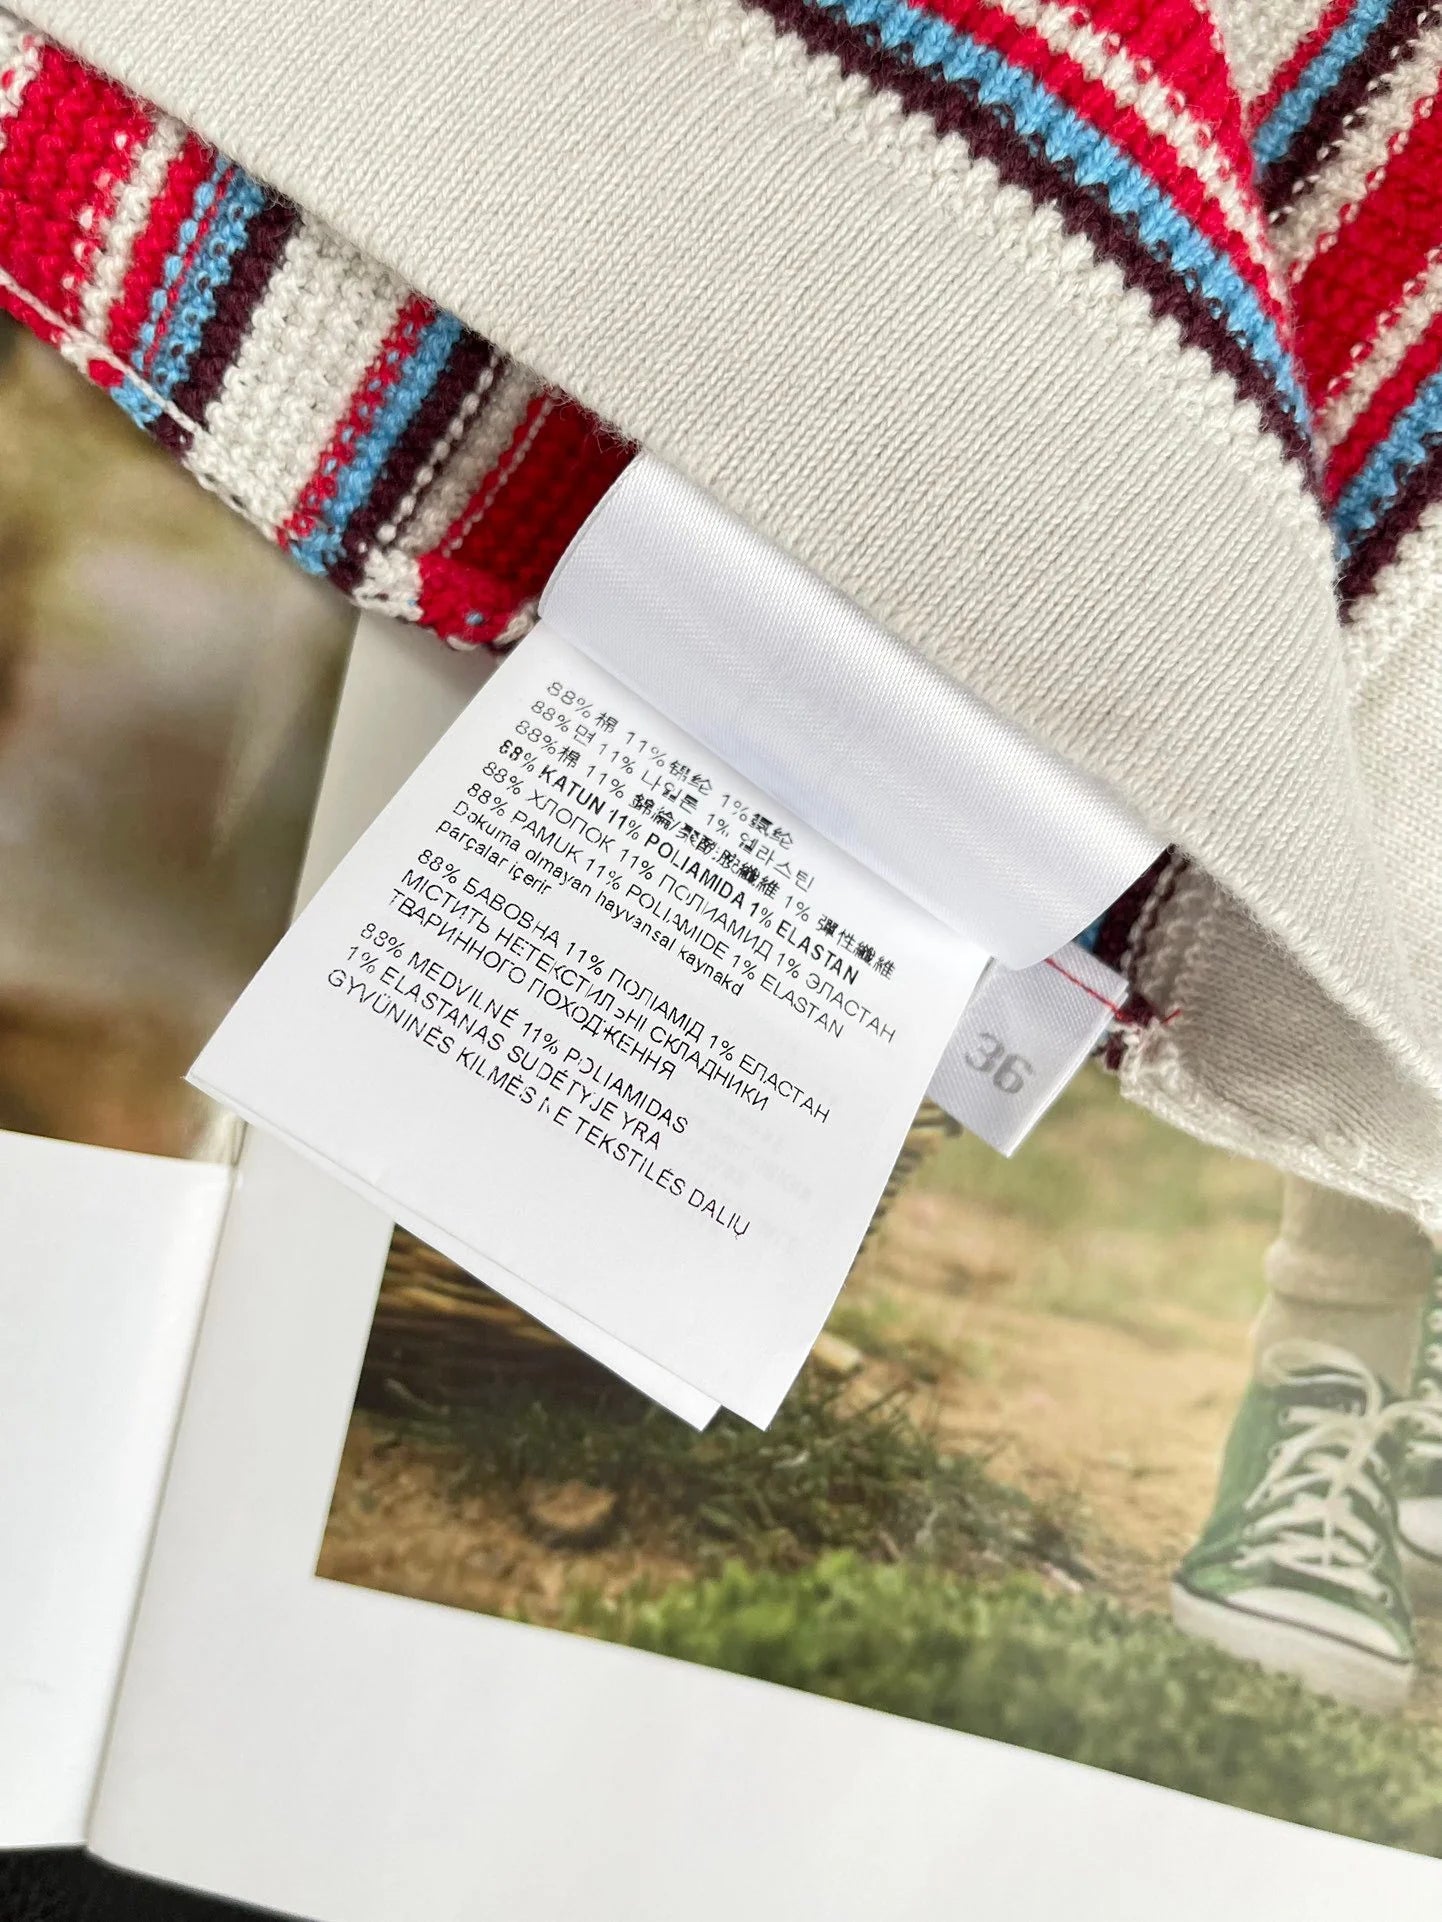 88% 棉 11% 锦纶 1% 氨纶
88% 면 11% 나일론 1% 엘라스틴
88% 棉 11% 錦綸/聚酰胺纖維 1% 彈性纖維
88% KATUN 11% POLIAMIDA 1% ELASTAN
88% ХЛОПОК 11% ПОЛИАМИД 1% ЭЛАСТАН
88% PAMUK 11% POLIAMIDE 1% ELASTAN
Dokuma olmayan hayvansal kaynakd
parçalar içerir
88% БАВОВНА 11% ПОЛІАМІД 1% ЕЛАСТАН
МІСТИТЬ НЕТЕКСТИЛЬНІ СКЛАДНИКИ
ТВАРИННОГО ПОХОДЖЕННЯ
88% MEDVILNĖ 11% POLIAMIDAS
1% ELASTANAS SUDĖTYJE YRA
GYVŪNINĖS KILMĖS NE TEKSTILĖS DALIŲ
36